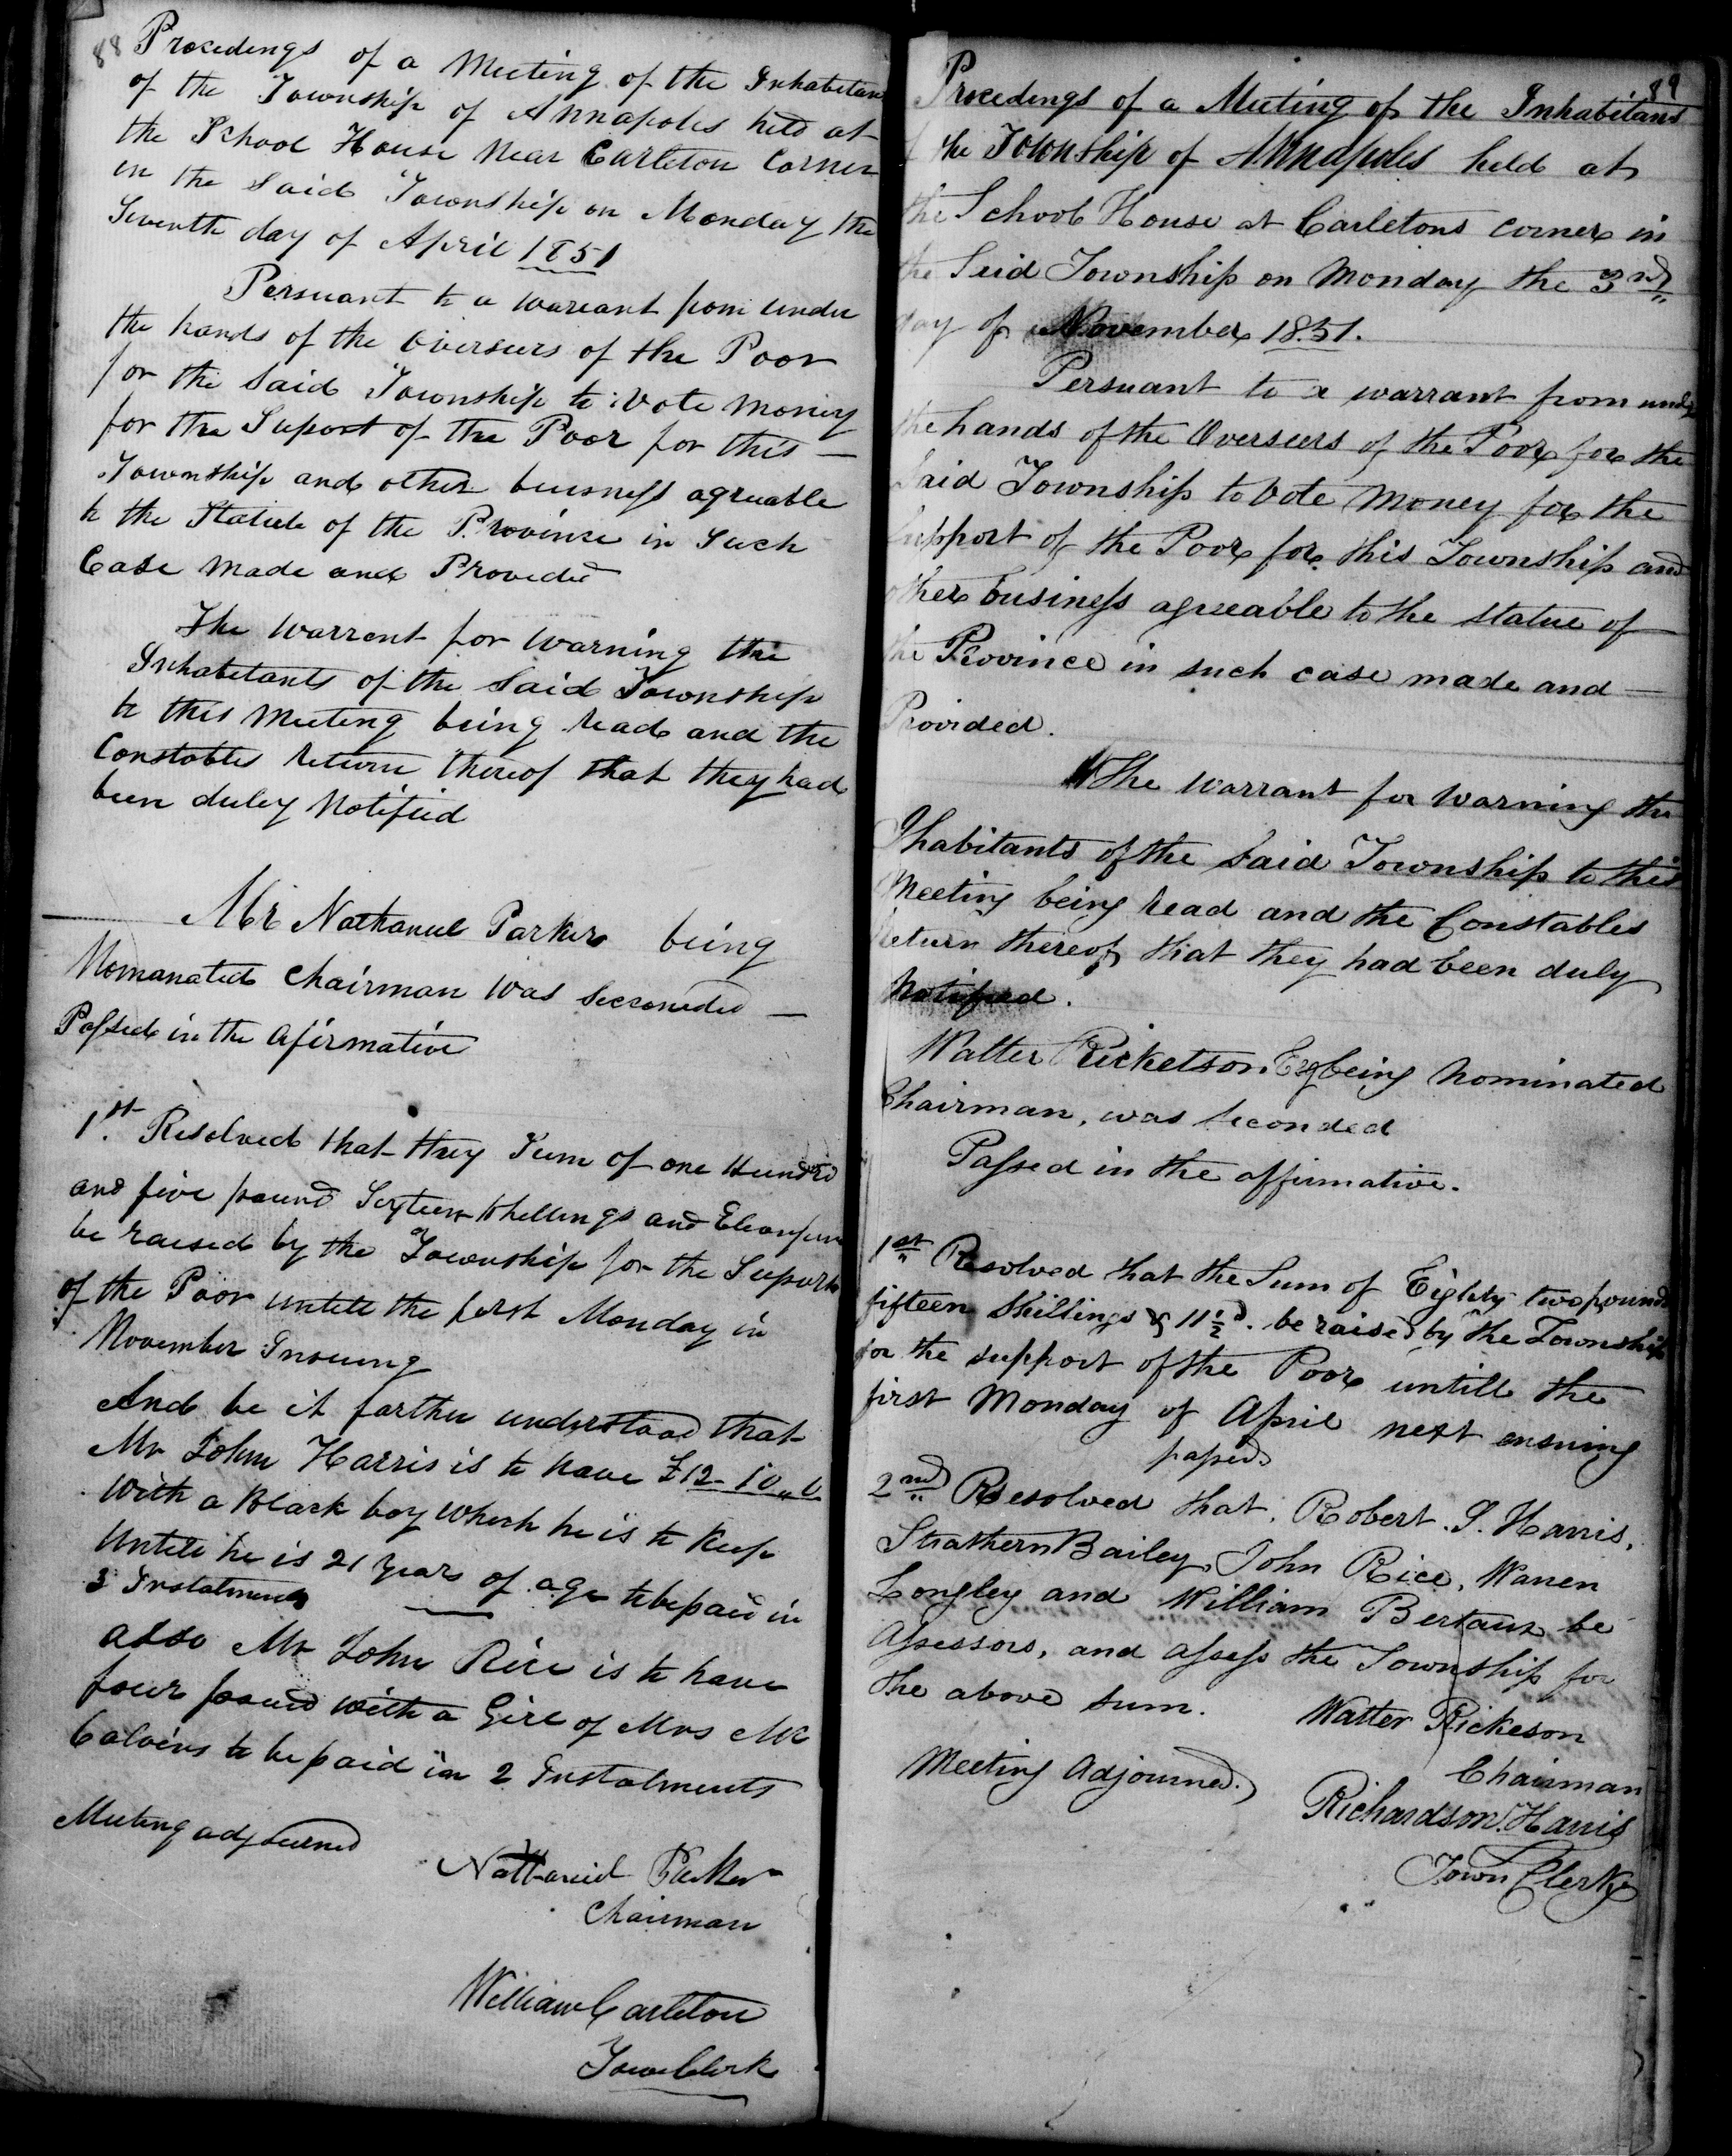 88
Procedings of a Meeting of the Inhabitan
of the Township of Annapolis held at
the School House Near Carleton Corner
in the Said Township on Monday the
Seventh day of April 1851
Persuant to a warrant from under
the hands of the Overseers of the Poor
for the Said Township to Vote Money
for the Suport of the Poor for this —
Township and other buisness agreable
to the Statute of the Province in Such
Case Made and Provided
The Warrent for Warning the
Inhabetants of the Said Township
to this Meeting being read and the
Constables Return thereof that they had
been duley Notified
Mr Nathaniel Parker being
Nomanated Chairman Was Seconded —
Passed in the afirmative
1st. Resolved that they Sum of one Hundred
and five pound Sixteen Shillings and
be raised by the Township for the Suport
of the Poor untill the first Monday in
November Insuing
And be it farther understood that
Mr John Harris is to have £12-10-0
With a Black boy which he is to Keep
Untill he is 21 Years of age to be paid in
3 Instalments
also Mr John Rice is to have
four pound with a Girl of Mrs Mc
Calvins to be paid in 2 Instalments
Meeting adjourned
Nathaniel Parker
Chairman
William Carleton
Town Clerk
89
Procedings of a Meeting of the Inhabitans
of the Township of Annapolis held at
the School House at Carletons corner in
the Said Township on Monday the 3rd
day of November 1851.
Persuant to a warrant from under
the hands of the Overseers of the Poor for the
Said Township to Vote Money for the
Support of the Poor for this Township and
other business agreeable to the statue of
the Province in such case made and —
Provided.
The warrant for Warning the
Ihabitants of the Said Township to this
Meeting being read and the Constables
return thereof that they had been duly
Notified.
Walter Ricketson Esq being Nominated
Chairman, was Seconded
Passed in the affirmative.
1st Resolved that the Sum of Eighty two pounds
fifteen Shillings & 11½d. be raised by the Township
for the support of the Poor untill the
first Monday of April next ensuing
passed
2nd Resolved that, Robert. S. Harris,
Strathern Bailey, John Rice, Warren
Longley and William Bertaux be
Assessors, and assess the Township for
the above sum.
Walter Rickeson
Chairman
Meeting Adjourned.
Richardson Harris
Town Clerk